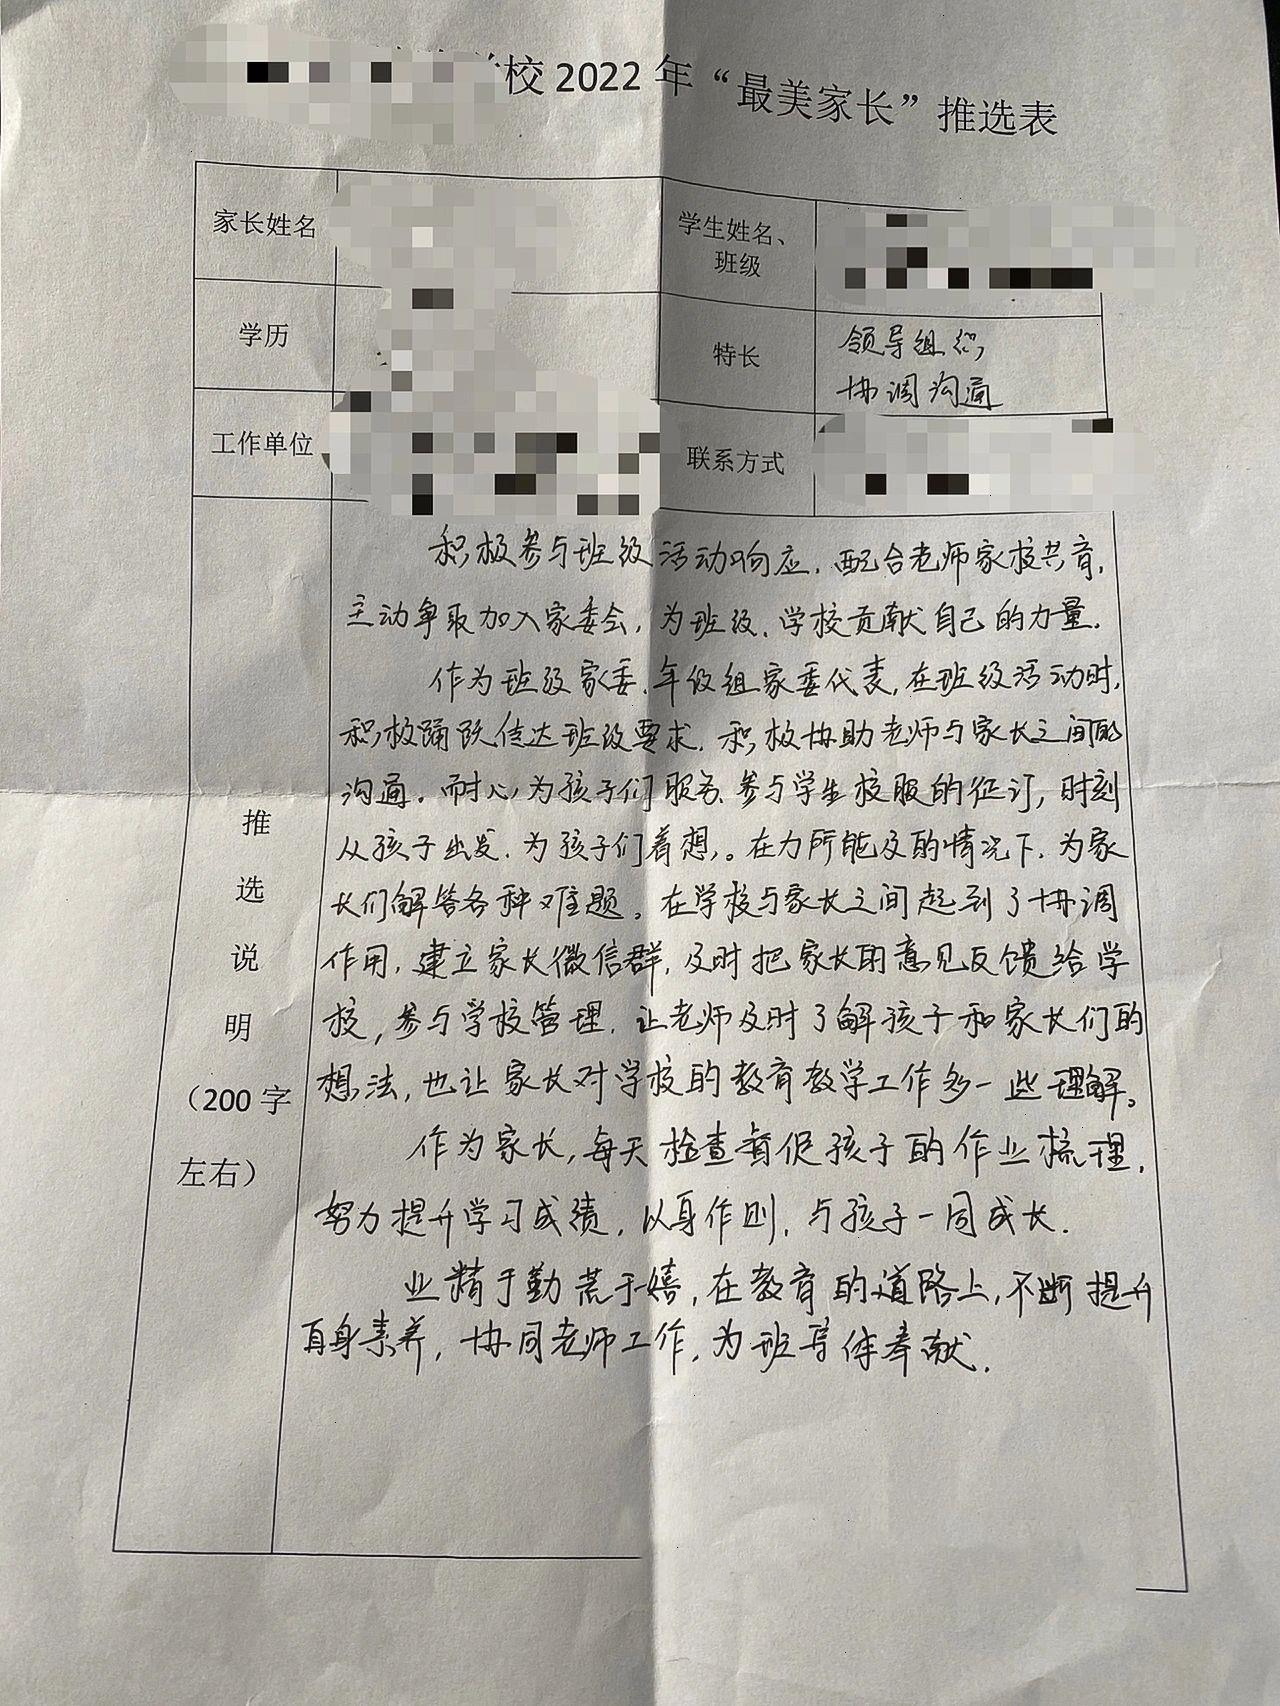 学校 2022 年“最美家长”推选表
家长姓名
学生姓名、
班级
学历
特长
领导组织
协调沟通
工作单位
联系方式
推
选
说
明
（200 字
左右）
积极参与班级活动响应，配合老师家校共育，
主动争取加入家委会，为班级、学校贡献自己的力量。
作为班级家委、年级组家委代表，在班级活动时，
积极踊跃传达班级要求，积极协助老师与家长之间的
沟通。耐心为孩子们服务、参与学生校服的征订，时刻
从孩子出发，为孩子们着想。在力所能及的情况下，为家
长们解答各种难题。在学校与家长之间起到了协调
作用，建立家长微信群，及时把家长的意见反馈给学
校，参与学校管理，让老师及时了解孩子和家长们的
想法，也让家长对学校的教育教学工作多一些理解。
作为家长，每天检查督促孩子的作业梳理，
努力提升学习成绩，以身作则，与孩子一同成长。
业精于勤荒于嬉，在教育的道路上，不断提升
自身素养，协同老师工作，为班集体奉献。